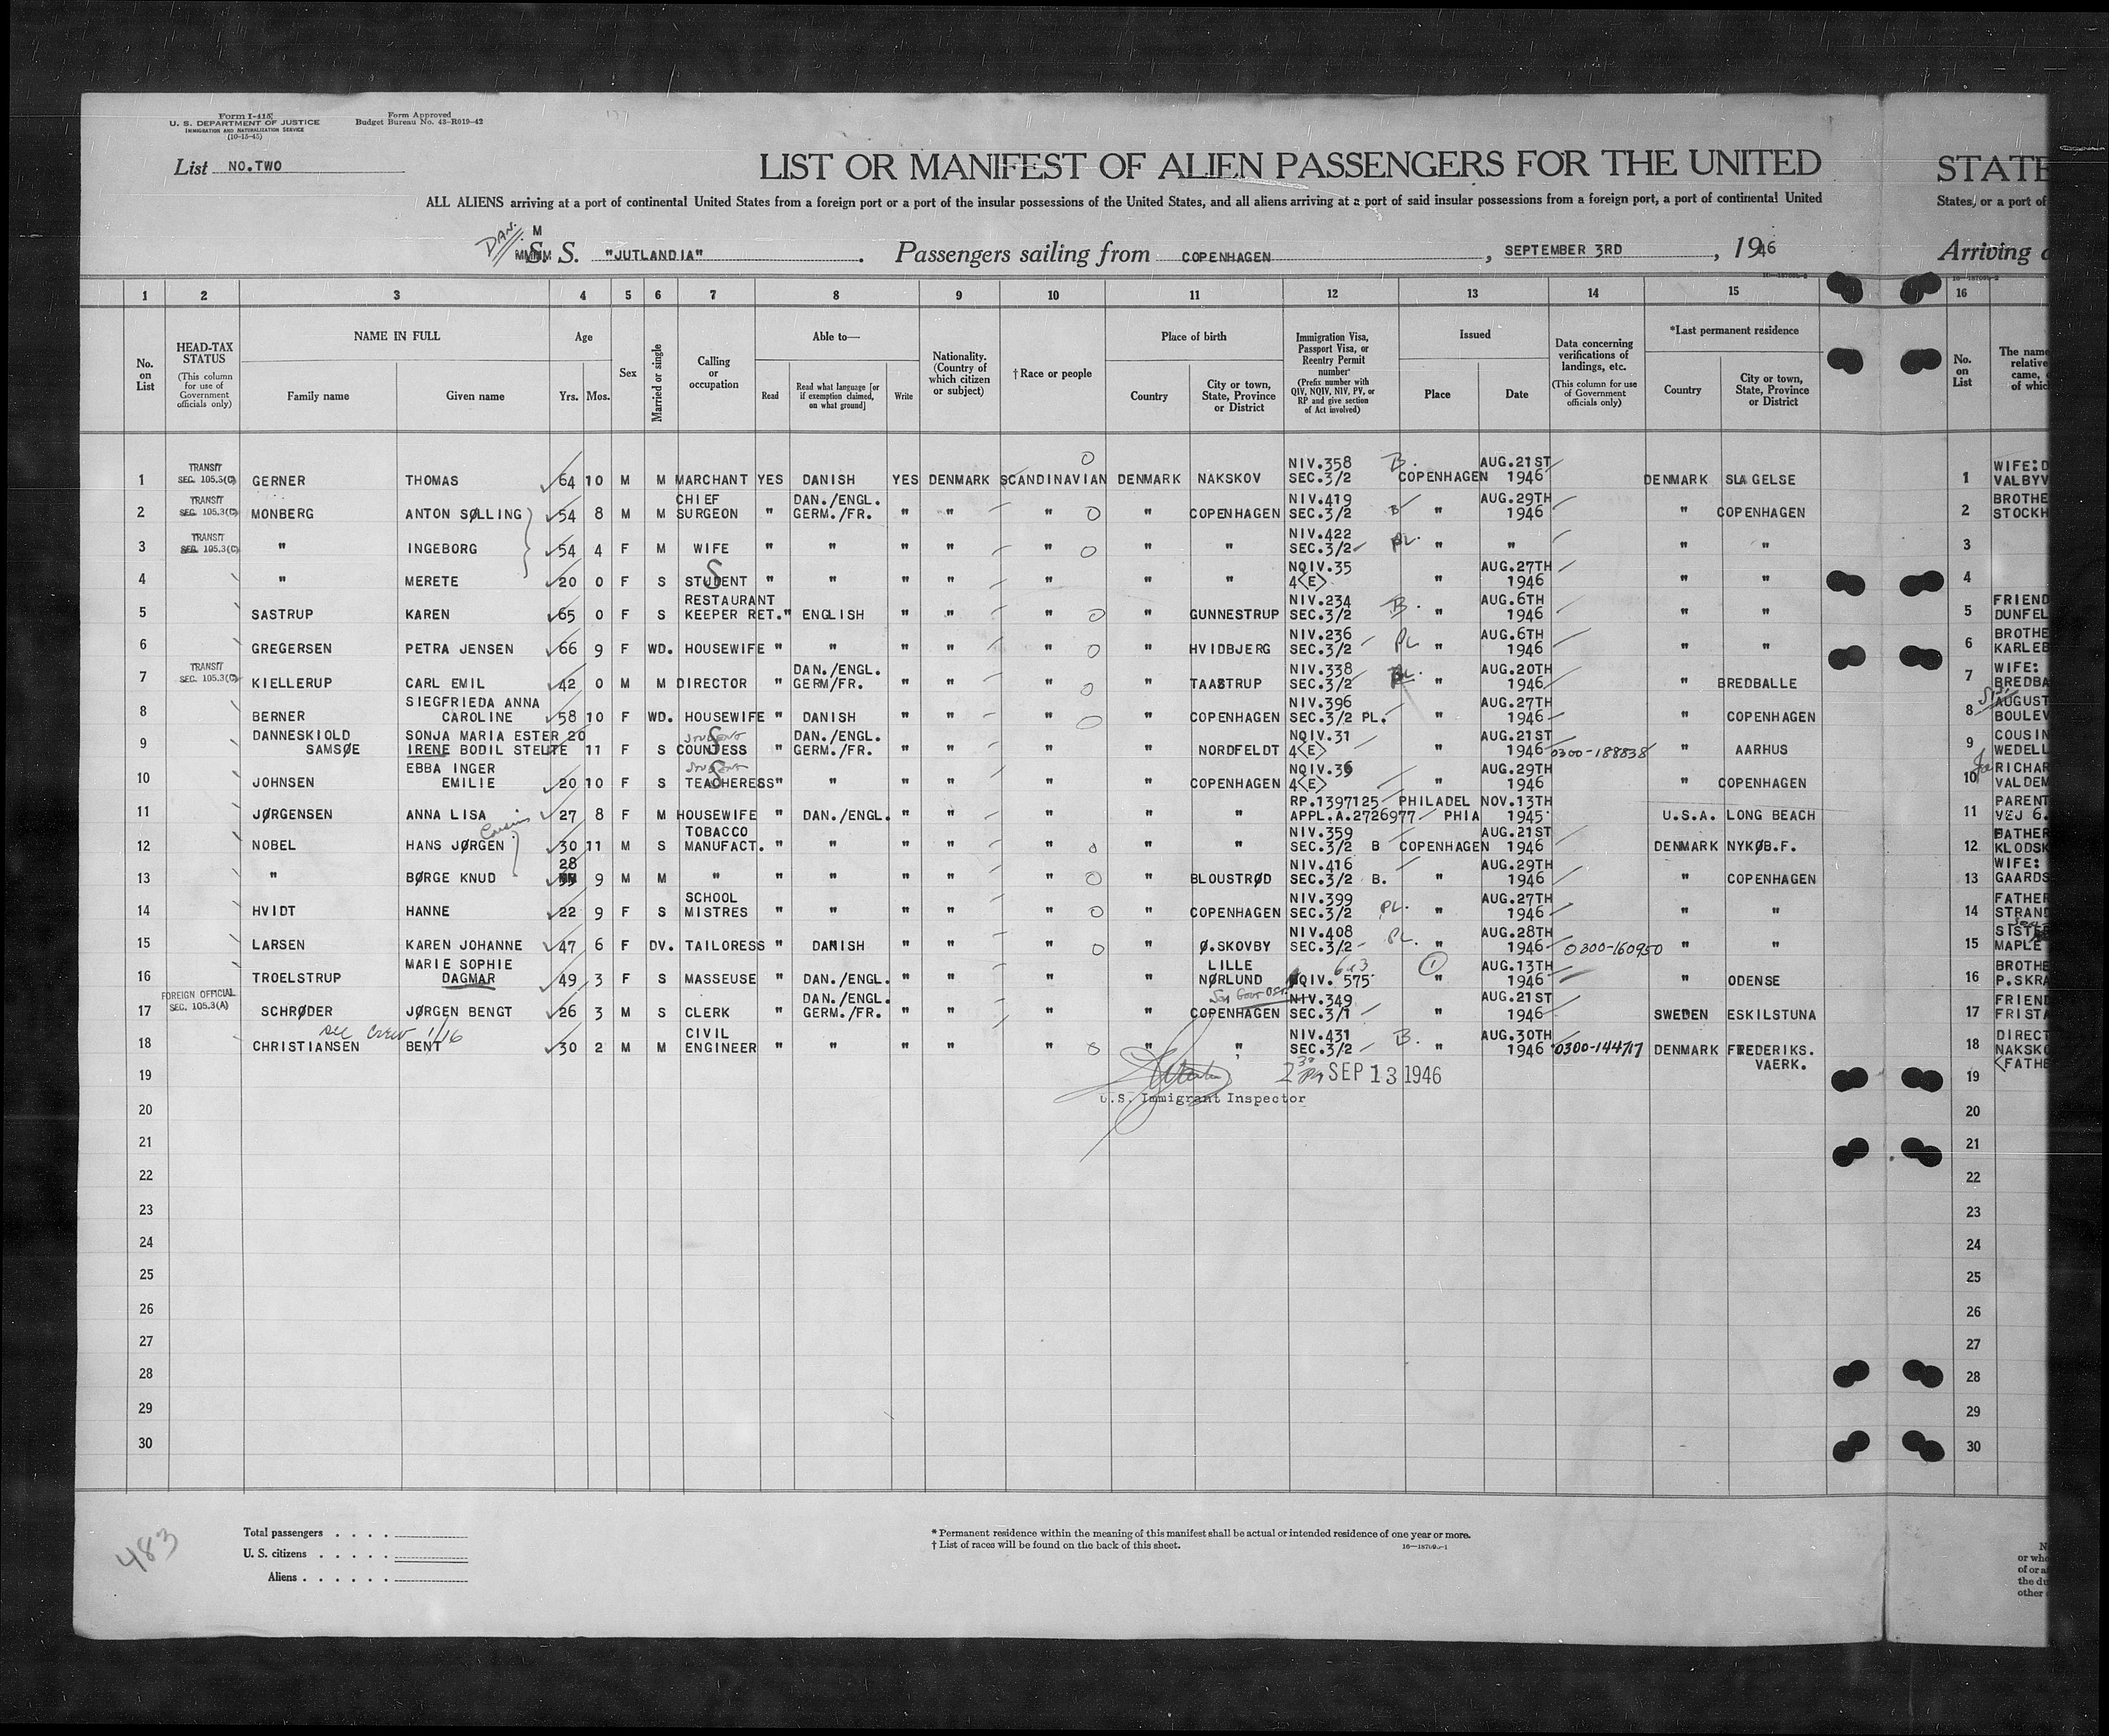 Form I-415
U. S. DEPARTMENT OF JUSTICE
IMMIGRATION AND NATURALIZATION SERVICE
(10-15-45)
Form Approved
Budget Bureau No. 43-R019-42
List NO.TWO
LIST OR MANIFEST OF ALIEN PASSENGERS FOR THE UNITED STATE
ALL ALIENS arriving at a port of continental United States from a foreign port or a port of the insular possessions of the United States, and all aliens arriving at a port of said insular possessions from a foreign port, a port of continental United States, or a port of
DAN. M
S. S. "JUTLANDIA" . Passengers sailing from COPENHAGEN , SEPTEMBER 3RD , 1946 Arriving
1 2 3 4 5 6 7 8 9 10 11 12 13 14 15 16
No. on List
HEAD-TAX STATUS
(This column for use of Government officials only)
NAME IN FULL
Family name Given name
Age
Yrs. Mos.
Sex
Married or single
Calling or occupation
Able to—
Read Read what language [or if exemption claimed, on what ground] Write
Nationality. (Country of which citizen or subject)
† Race or people
Place of birth
Country City or town, State, Province or District
Immigration Visa, Passport Visa, or Reentry Permit number
(Prefix number with QIV, NQIV, NIV, PV, or RP and give section of Act involved)
Issued
Place Date
Data concerning verifications of landings, etc.
(This column for use of Government officials only)
*Last permanent residence
Country City or town, State, Province or District
No. on List
The name
relative
came,
of which
1 TRANSIT SEC. 105.3(C) GERNER THOMAS 64 10 M M MARCHANT YES DANISH YES DENMARK SCANDINAVIAN DENMARK NAKSKOV NIV.358 SEC.3/2 B. COPENHAGEN AUG.21ST 1946 DENMARK SLAGELSE 1 WIFE:D VALBYV
2 TRANSIT SEC. 105.3(C) MONBERG ANTON SØLLING 54 8 M M CHIEF SURGEON " DAN./ENGL. GERM./FR. " " " " COPENHAGEN NIV.419 SEC.3/2 B " AUG.29TH 1946 " COPENHAGEN 2 BROTHE STOCKH
3 TRANSIT SEC. 105.3(C) " INGEBORG 54 4 F M WIFE " " " " " " " NIV.422 SEC.3/2 PL. " " " " 3
4 " MERETE 20 0 F S STUDENT S " " " " " " " NQIV.35 4<E> " AUG.27TH 1946 " " 4
5 SASTRUP KAREN 65 0 F S RESTAURANT KEEPER RET. " ENGLISH " " " " GUNNESTRUP NIV.234 SEC.3/2 B. " AUG.6TH 1946 " " 5 FRIEND DUNFEL
6 GREGERSEN PETRA JENSEN 66 9 F WD. HOUSEWIFE " " " " " " HVIDBJERG NIV.236 SEC.3/2 PL " AUG.6TH 1946 " " 6 BROTHE KARLEB
7 TRANSIT SEC. 105.3(C) KIELLERUP CARL EMIL 42 0 M M DIRECTOR " DAN./ENGL. GERM/FR. " " " " TAASTRUP NIV.338 SEC.3/2 " AUG.20TH 1946 " BREDBALLE 7 WIFE: BREDBA
8 BERNER SIEGFRIEDA ANNA CAROLINE 58 10 F WD. HOUSEWIFE " DANISH " " " " COPENHAGEN NIV.396 SEC.3/2 PL. " AUG.27TH 1946 " COPENHAGEN 8 AUGUST BOULEV
9 DANNESKIOLD SAMSØE SONJA MARIA ESTER IRENE BODIL STELLTE 20 11 F S STUDENT COUNTESS S " DAN./ENGL. GERM./FR. " " " " NORDFELDT NQIV.31 4<E> " AUG.21ST 1946 0300-188838 " AARHUS 9 COUSIN WEDELL
10 JOHNSEN EBBA INGER EMILIE 20 10 F S STUDENT TEACHERESS S " " " " " " COPENHAGEN NQIV.36 4<E> " AUG.29TH 1946 " COPENHAGEN 10 RICHAR VALDEM
11 JØRGENSEN ANNA LISA 27 8 F M HOUSEWIFE " DAN./ENGL. " " " " " RP.1397125 APPL.A.2726977 PHILADELPHIA NOV.13TH 1945 U.S.A. LONG BEACH 11 PARENT VEJ 6.
Cousins
12 NOBEL HANS JØRGEN 30 11 M S TOBACCO MANUFACT. " " " " " " " NIV.359 SEC.3/2 B COPENHAGEN AUG.21ST 1946 DENMARK NYKØB.F. 12 FATHER KLODSK
13 " BØRGE KNUD 28 9 M M " " " " " " " BLOUSTRØD NIV.416 SEC.3/2 B. " AUG.29TH 1946 " COPENHAGEN 13 WIFE: GAARDS
14 HVIDT HANNE 22 9 F S SCHOOL MISTRES " " " " " " COPENHAGEN NIV.399 SEC.3/2 PL. " AUG.27TH 1946 " " 14 FATHER STRAND
15 LARSEN KAREN JOHANNE 47 6 F DV. TAILORESS " DANISH " " " " Ø.SKOVBY NIV.408 SEC.3/2 PL. " AUG.28TH 1946 0300-160950 " " 15 SISTER MAPLE
16 TROELSTRUP MARIE SOPHIE DAGMAR 49 3 F S MASSEUSE " DAN./ENGL. " " " " LILLE NØRLUND QIV. 575 " 1 AUG.13TH 1946 " ODENSE 16 BROTHE P.SKRA
17 FOREIGN OFFICIAL SEC. 105.3(A) SCHRØDER JØRGEN BENGT 26 3 M S CLERK " DAN./ENGL. GERM./FR. " " " " COPENHAGEN NIV.349 SEC.3/1 " AUG.21ST 1946 SWEDEN ESKILSTUNA 17 FRIEND FRISTA
18 CHRISTIANSEN BENT 30 2 M M CIVIL ENGINEER " " " " " " " NIV.431 SEC.3/2 B. " AUG.30TH 1946 0300-144717 DENMARK FREDERIKS. VAERK. 18 DIRECT NAKSKO <FATHE
19 SEP 13 1946 19
U.S. Immigrant Inspector
20 20
21 21
22 22
23 23
24 24
25 25
26 26
27 27
28 28
29 29
30 30
483
Total passengers . . . .
U. S. citizens . . . . .
Aliens . . . . . .
* Permanent residence within the meaning of this manifest shall be actual or intended residence of one year or more.
† List of races will be found on the back of this sheet.
or who
of or a
the du
other